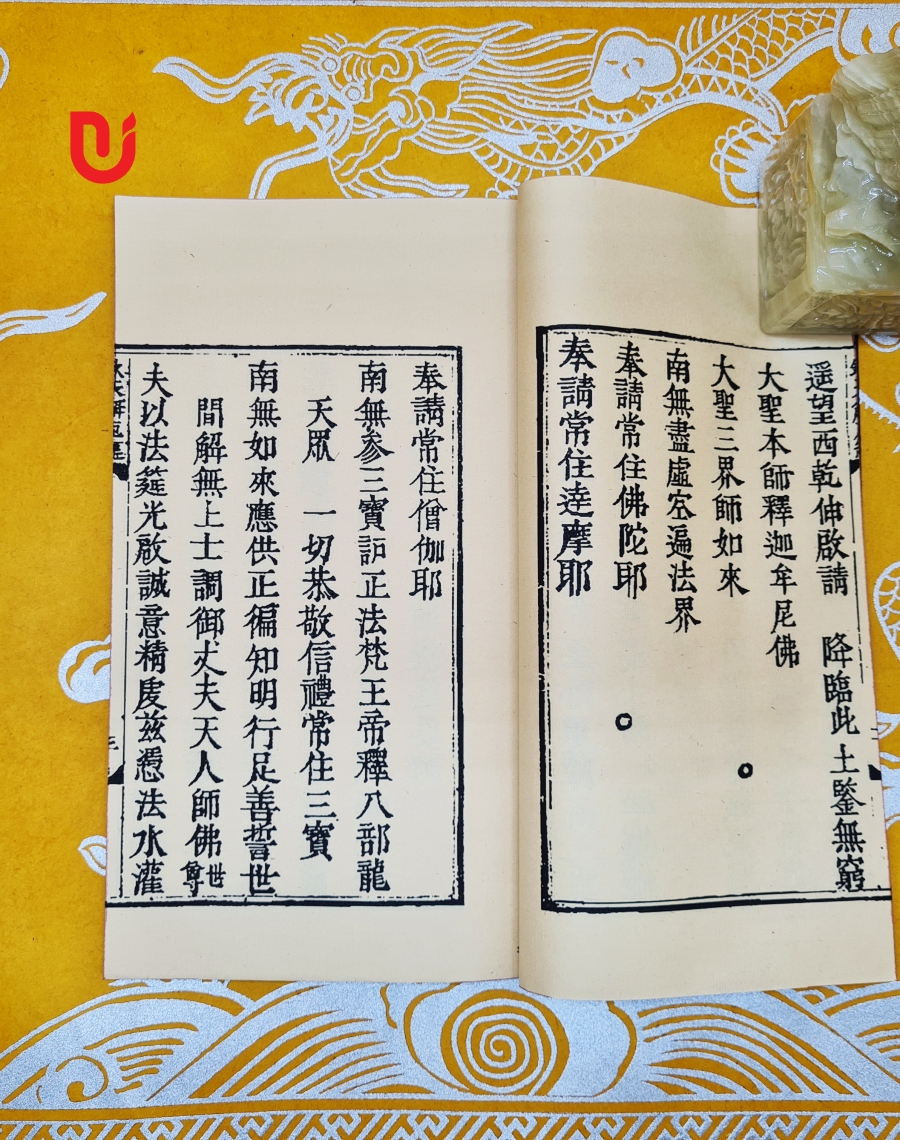 遥望西乾伸啟請　降臨此土鑒無窮
大聖本師釋迦牟尼佛
大聖三界師如來
南無盡虛空遍法界
奉請常住佛陀耶
奉請常住達摩耶
奉請常住僧伽耶
南無参三寶護正法梵王帝釋八部龍
天眾　一切恭敬信禮常住三寶
南無如來應供正徧知明行足善誓世
間解無上士調御丈夫天人師佛世尊
夫以法筵光啟誠意精虔兹憑法水灌